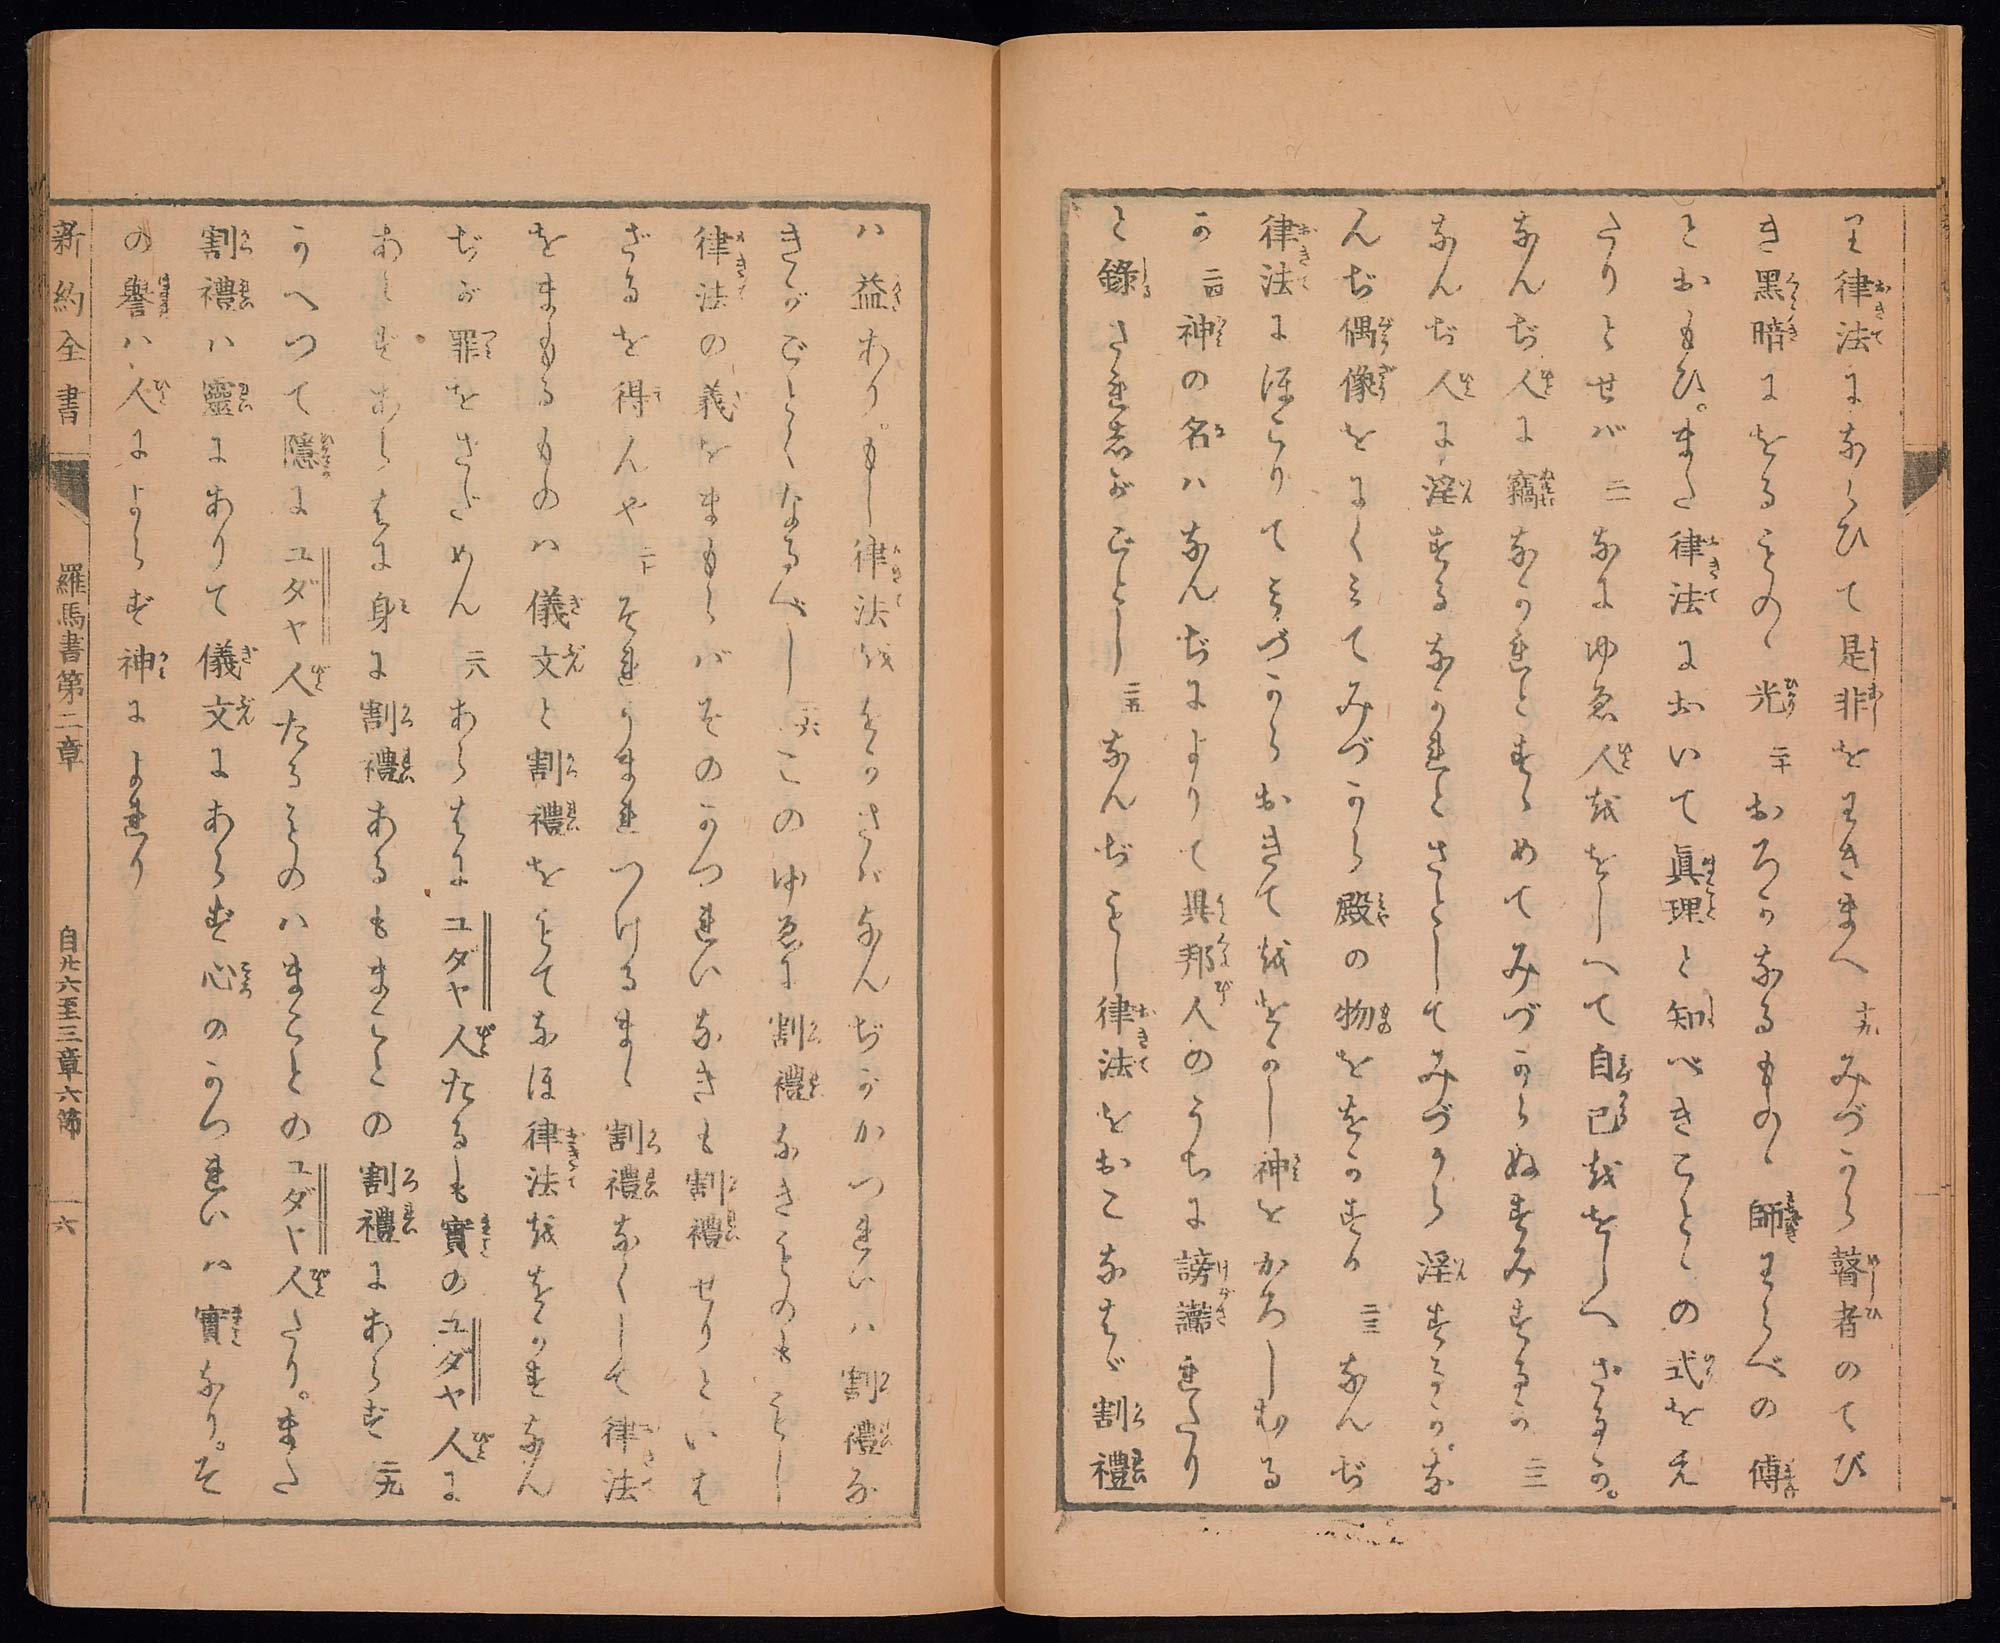 り律法にならひて是非をわきまへ 十九 みづから瞽者のてび
き黒暗にをるものゝ光 二十 おろかなるものゝ師わらべの傅
とおもひ。また律法において眞理と知べきことゝの式をえ
たりとせバ 二一 なにゆゑ人ををしへて自己ををしへざるか。
なんぢ人に竊なかれとすゝめてみづからぬすみするか 二二
なんぢ人に淫するなかれとさとしてみづから淫するか。な
んぢ偶像をにくみてみづから殿の物ををかすか 二三 なんぢ
律法にほこりてみづからおきてををかし神をかろしむる
か 二四 神の名ハなんぢによりて異邦人のうちに謗讟れたり
と錄されしがごとし 二五 なんぢもし律法をおこなはゞ割禮
ハ益あり。もし律法ををかさバなんぢがかつれいハ割禮な
きがごとくなるべし 二六 このゆゑに割禮なきものももし
律法の義をまもらバそのかつれいなきも割禮せりといは
ざるを得んや 二七 それうまれつけるまゝ割禮なくして律法
をまもるものハ儀文と割禮をもてなほ律法ををかすなん
ぢが罪をさだめん 二八 あらはにユダヤ人たるも實のユダヤ人に
あらずあらはに身に割禮あるもまことの割禮にあらず 二九
かへつて隱にユダヤ人たるものハまことのユダヤ人たり。また
割禮ハ靈にありて儀文にあらず心のかつれいハ實なり。そ
の譽ハ人によらず神によれり
新約全書 羅馬書第二章 自 六至三章六節 十六